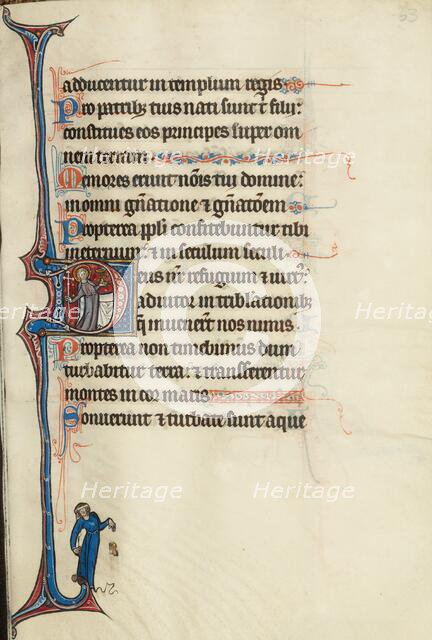 53
adducentur in templum regis
Pro patribz tuis nati sunt t̄ filii:
constitues eos principes super om
nem terram
Memores erunt nōis tui domine:
in omni gn̄atione & gn̄atōem
Propterea ppl̄i confitebuntur tibi
in eternum: & in seculum seculi
Deus nr̄ refugium & uirt:
adiutor in tribulationibz
q̄ inuenert̄ nos nimis.
Propterea non timebimus dum
turbabitur terra: & transferentur
montes in cor maris
Sonuerunt & turbate sunt aque
Heritage Heritage
Heritage Heritage
Heritage Heritage